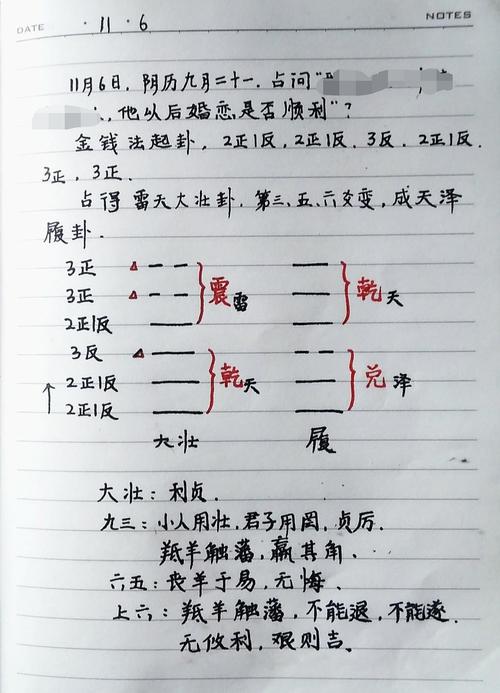 DATE 11·6 NOTES
11月6日，阴历九月二十一．占问“
，他以后婚恋是否顺利”？
金钱法起卦，2正1反，2正1反．3反．2正1反．
3正，3正．
占得 雷天大壮卦．第三、五、六爻变，成天泽
履卦．
3正 震 雷 乾 天
3正
2正1反
3反 乾 天 兑 泽
2正1反
2正1反
大壮 履
大壮：利贞．
九三：小人用壮，君子用罔，贞厉．
羝羊触藩，羸其角．
六五：丧羊于易，无悔．
上六：羝羊触藩，不能退，不能遂．
无攸利，艰则吉。